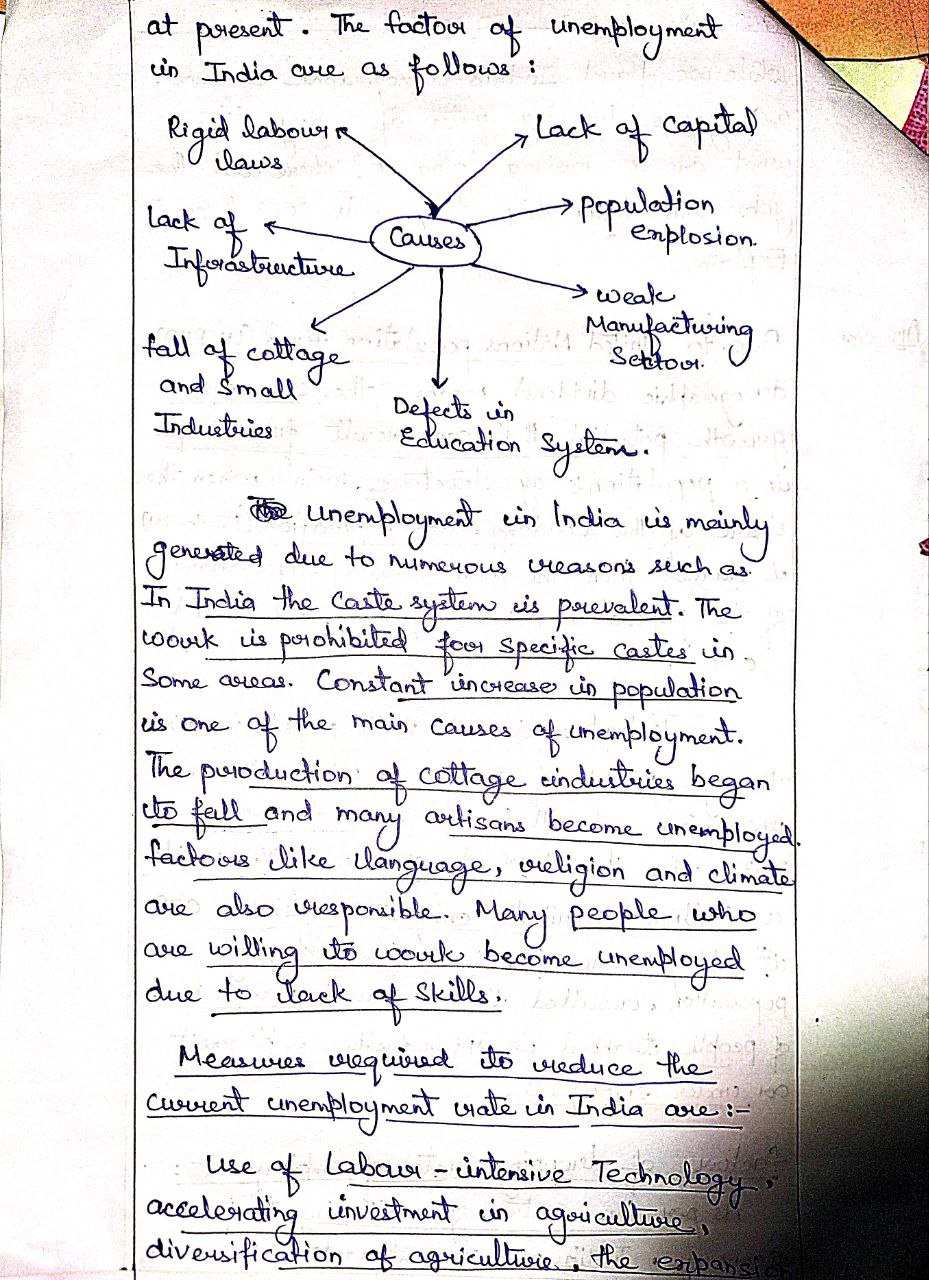 at present. The factor of unemployment
in India are as follows :
Rigid labour
laws
Lack of capital
Lack of
Infrastructure
Causes
Population
explosion.
weak
Manufacturing
Sector.
fall of cottage
and Small
Industries
Defects in
Education System.
unemployment in India is mainly
generated due to numerous reasons such as
In India the Caste system is prevalent. The
work is prohibited for specific castes in
Some areas. Constant increase in population
is one of the main causes of unemployment.
The production of cottage industries began
to fall and many artisans become unemployed.
factors like language, religion and climate
are also responsible. Many people who
are willing to work become unemployed
due to lack of Skills.
Measures required to reduce the
current unemployment rate in India are :-
Use of Labour - intensive Technology,
accelerating investment in agriculture,
diversification of agriculture, the